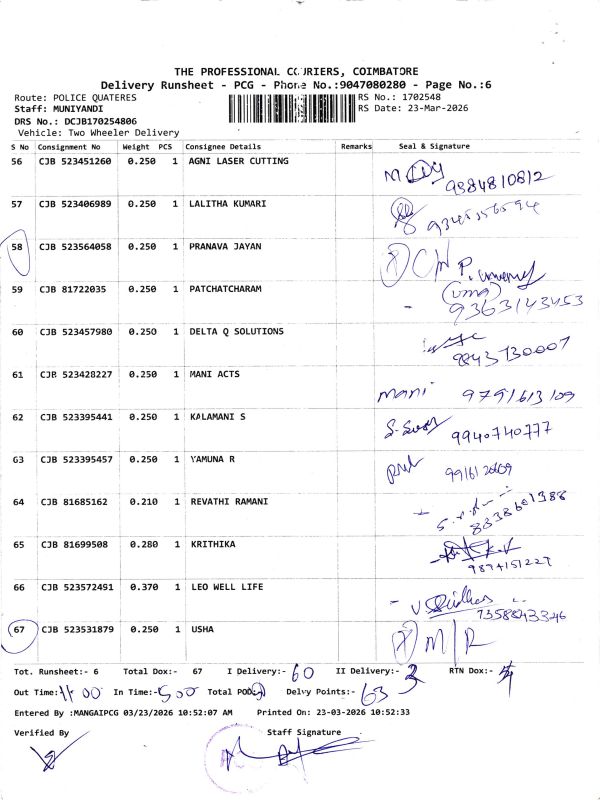 THE PROFESSIONAL COURIERS, COIMBATORE
Delivery Runsheet - PCG - Phone No.:9047080280 - Page No.:6
Route: POLICE QUATERES RS No.: 1702548
Staff: MUNIYANDI RS Date: 23-Mar-2026
DRS No.: DCJB170254806
Vehicle: Two Wheeler Delivery
S No Consignment No Weight PCS Consignee Details Remarks Seal & Signature
56 CJB 523451260 0.250 1 AGNI LASER CUTTING
9384810812
57 CJB 523406989 0.250 1 LALITHA KUMARI
58 CJB 523564058 0.250 1 PRANAVA JAYAN
59 CJB 81722035 0.250 1 PATCHATCHARAM
(uma)
9363143453
60 CJB 523457980 0.250 1 DELTA Q SOLUTIONS
9843730007
61 CJB 523428227 0.250 1 MANI ACTS
mani 9791613109
62 CJB 523395441 0.250 1 KALAMANI S
9940740777
63 CJB 523395457 0.250 1 YAMUNA R
64 CJB 81685162 0.210 1 REVATHI RAMANI
8838601388
65 CJB 81699508 0.280 1 KRITHIKA
9894151227
66 CJB 523572491 0.370 1 LEO WELL LIFE
7358843346
67 CJB 523531879 0.250 1 USHA
M/R
Tot. Runsheet:- 6 Total Dox:- 67 I Delivery:- 60 II Delivery:- 3 RTN Dox:- 4
Out Time: 11 00 In Time:- 500 Total POD: Delvy Points:- 63
Entered By :MANGAIPCG 03/23/2026 10:52:07 AM Printed On: 23-03-2026 10:52:33
Verified By Staff Signature